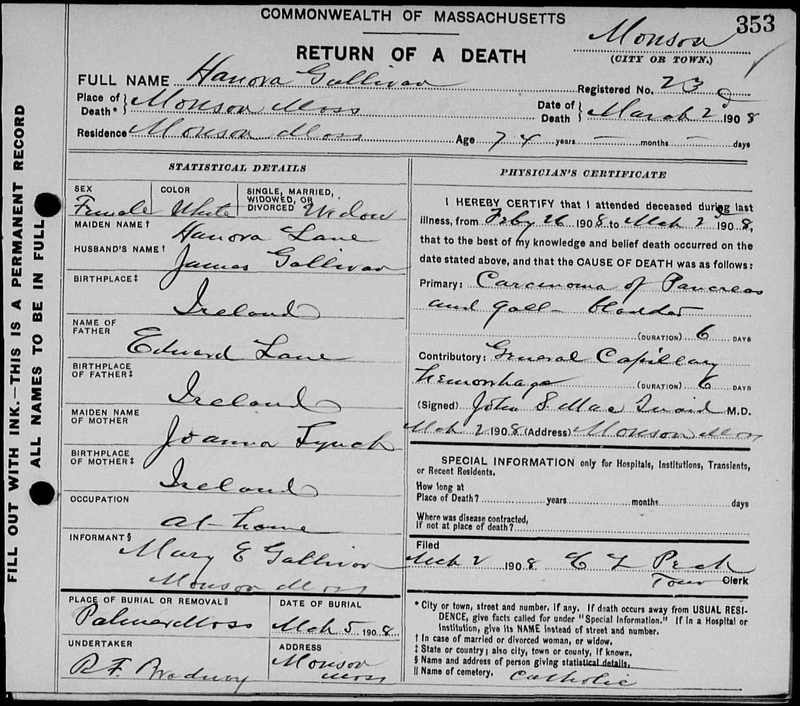 COMMONWEALTH OF MASSACHUSETTS
353
RETURN OF A DEATH
Monson
(CITY OR TOWN.)
FULL NAME Hanora Gallivan Registered No. 23
Place of Death* Monson Mass Date of Death March 2 1908
Residence Monson Mass Age 74 years — months — days
FILL OUT WITH INK.—THIS IS A PERMANENT RECORD
ALL NAMES TO BE IN FULL
STATISTICAL DETAILS
SEX Female
COLOR White
SINGLE, MARRIED, WIDOWED, OR DIVORCED Widow
MAIDEN NAME† Hanora Lane
HUSBAND'S NAME† James Gallivan
BIRTHPLACE‡
Ireland
NAME OF FATHER Edward Lane
BIRTHPLACE OF FATHER‡
Ireland
MAIDEN NAME OF MOTHER Joanna Lynch
BIRTHPLACE OF MOTHER‡ Ireland
OCCUPATION
at home
INFORMANT§ Mary E Gallivan
Monson Mass
PLACE OF BURIAL OR REMOVAL‖
Palmer Mass
DATE OF BURIAL
Mch 5 1908
UNDERTAKER
R. F.
ADDRESS
Monson
Mass
PHYSICIAN'S CERTIFICATE
I HEREBY CERTIFY that I attended deceased during last
illness, from Feby 26 1908 to Mch 2 1908,
that to the best of my knowledge and belief death occurred on the
date stated above, and that the CAUSE OF DEATH was as follows:
Primary: Carcinoma of Pancreas
and gall-bladder
(DURATION) 6 DAYS
Contributory: General Capillary
hemorrhage (DURATION) 6 DAYS
(Signed) John S M.D.
Mch 2 1908 (Address) Monson Mass
SPECIAL INFORMATION only for Hospitals, Institutions, Transients,
or Recent Residents.
How long at
Place of Death? years months days
Where was disease contracted,
if not at place of death?
Filed
Mch 2 1908 Peck
Town Clerk
* City or town, street and number, if any. If death occurs away from USUAL RESI-
DENCE, give facts called for under "Special Information." If in a Hospital or
Institution, give its NAME instead of street and number.
† In case of married or divorced woman, or widow.
‡ State or country; also city, town or county, if known.
§ Name and address of person giving statistical details.
‖ Name of cemetery. Catholic